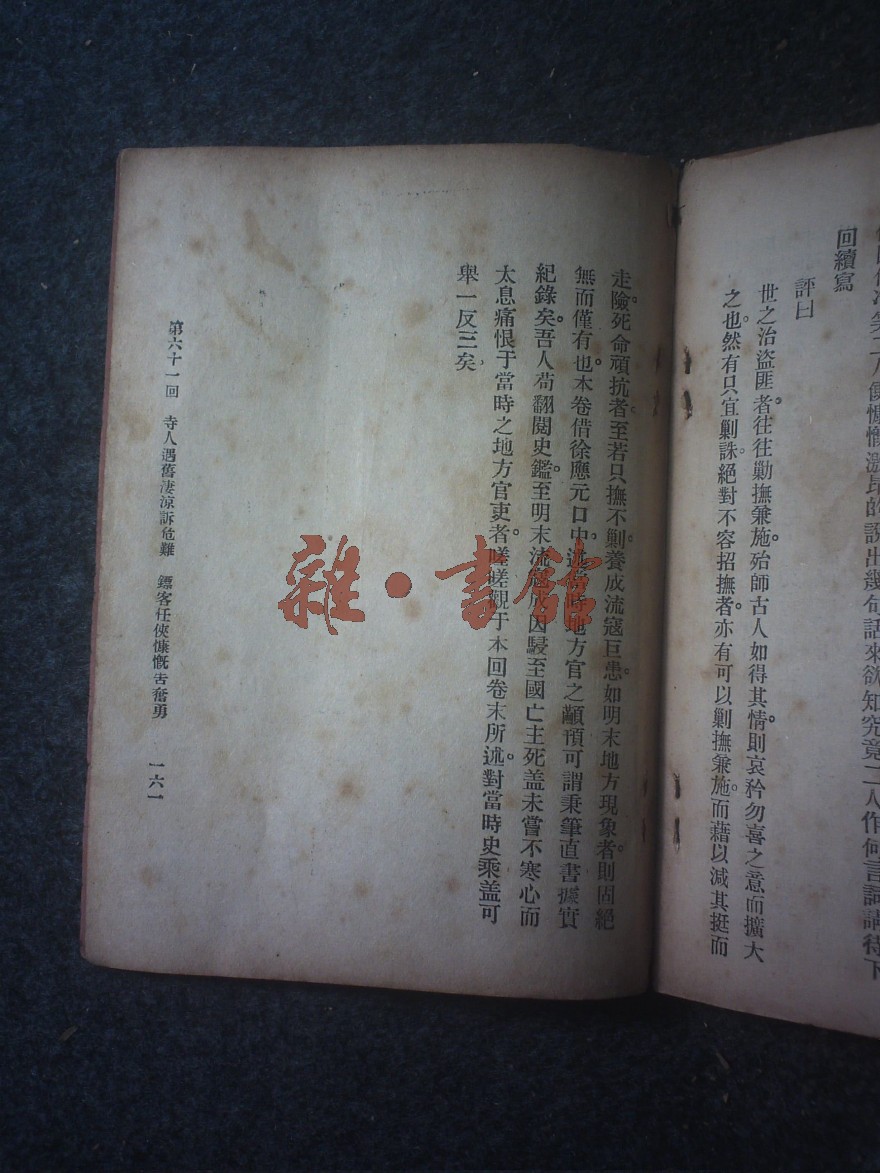 慷慨激昂的說出幾句話來欲知究竟二人作何言詞請待下
回續寫
評曰
世之治盜匪者。往往勦撫兼施。殆師古人如得其情則哀矜勿喜之意而擴大
之也。然有只宜剿誅。絕對不容招撫者。亦有可以剿撫兼施。而藉以減其挺而
走險。死命頑抗者。至若只撫不剿。養成流寇巨患。如明末地方現象者。則固絕
無而僅有也。本卷借徐應元口中。述當時地方官之顢頇可謂秉筆直書據實
紀錄矣。吾人苟翻閱史鑑。至明末流寇成因。駸至國亡主死。盖未嘗不寒心而
太息痛恨于當時之地方官吏者。嗟嗟觀于本回卷末所述。對當時史乘。盖可
舉一反三矣。
第六十一回　寺人遇舊淒涼訴危難　鏢客任俠慷慨告奮勇　一六一
雜·書館